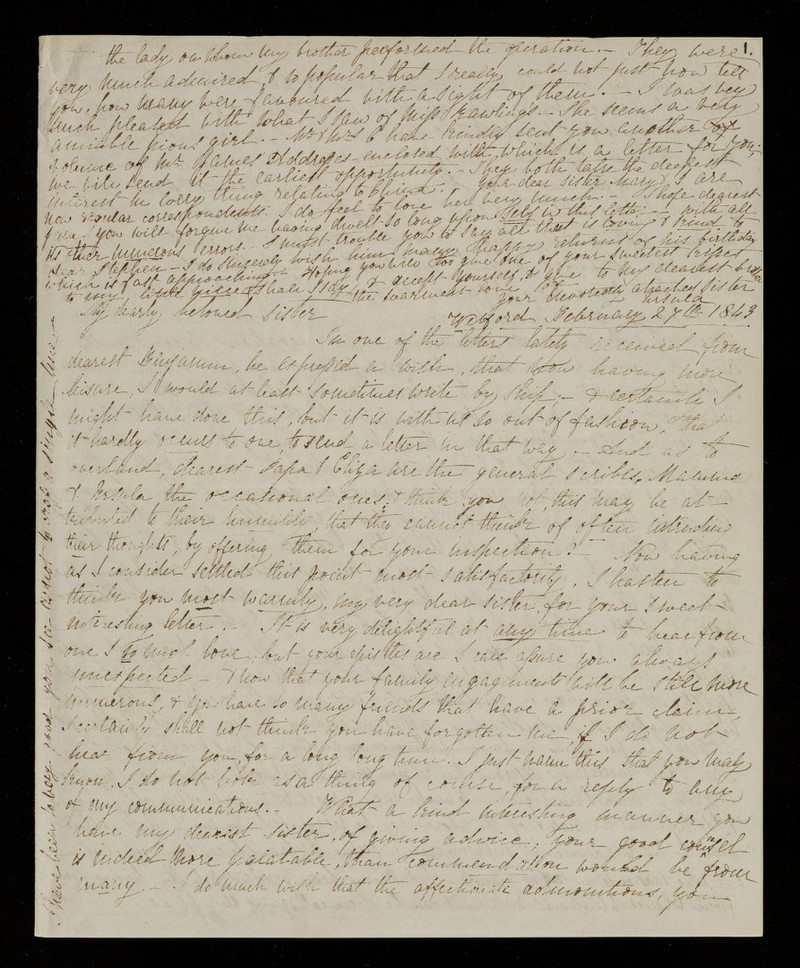 1.
the lady on whom my brother performed the operation. - They were
very much admired & so popular that I really could not just now tell
you, how many were favoured with a sight of them. - I was very
much pleased with what I saw of Miss Rawlings. - She seems a very
amiable pious girl. - Mr & Mrs C have kindly sent you another
volume of Mr James Addresses enclosed with which is a letter for you;
we will send it the earliest opportunity. - They both take the deepest
interest in every thing relating to China. Your dear Sister Mary & I are
now regular correspondents. I do feel to love her very much. - I hope dearest
you will forgive me having dwelt so long upon self in this letter - with all
its other numerous errors. I must trouble you to say all that is loving & kind to
dear Stephen - I do sincerely wish him many happy returns of his birthday
which is fast approaching. Hoping you will give one of your sweetest kisses
to my little niece shall I say, & accept yourself, & give to my dearest brother
the warmest love of your devotedly attached sister
Ursula
My dearly beloved Sister
Welford February 27th 1843
In one of the letters lately received from
dearest Benjamin, he expressed a wish, that now having more
leisure, I would at least sometimes write by ship; - & certainly I
might have done this, but it is with us so out of fashion, that
it hardly occurs to one, to send a letter in that way. - And as to
overland, dearest Papa & Eliza are the general scribes, Mamma
& Ursula the occasional ones; & think you not, this may be at-
tributed to their humility, that they cannot think of often intruding
their thoughts, by offering them for your inspection? - Now having
as I consider settled this point most satisfactorily, I hasten to
thank you most warmly, my very dear sister, for your sweet
interesting letter. - It is very delightful at any time to hear from
one I so much love, but your epistles are I can assure you always
unexpected - & now that your family engagements will be still more
numerous, & you have so many friends that have a prior claim,
I certainly shall not think you have forgotten me, if I do not
hear from you, for a long long time. I just name this that you may
know I do not look as a thing of course, for a reply to any
of my communications. - What a kind interesting manner you
have my dearest sister, of giving advice; your good counsel
is indeed more palatable, than commendation would be from
many. - I do much wish that the affectionate admonitions, you
have been very good you see as not to cross a single line -